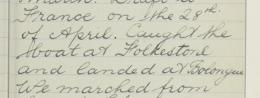 France on the 28th.
of April. Caught the
boat at Folkestone
and landed at Bolongue
We marched from